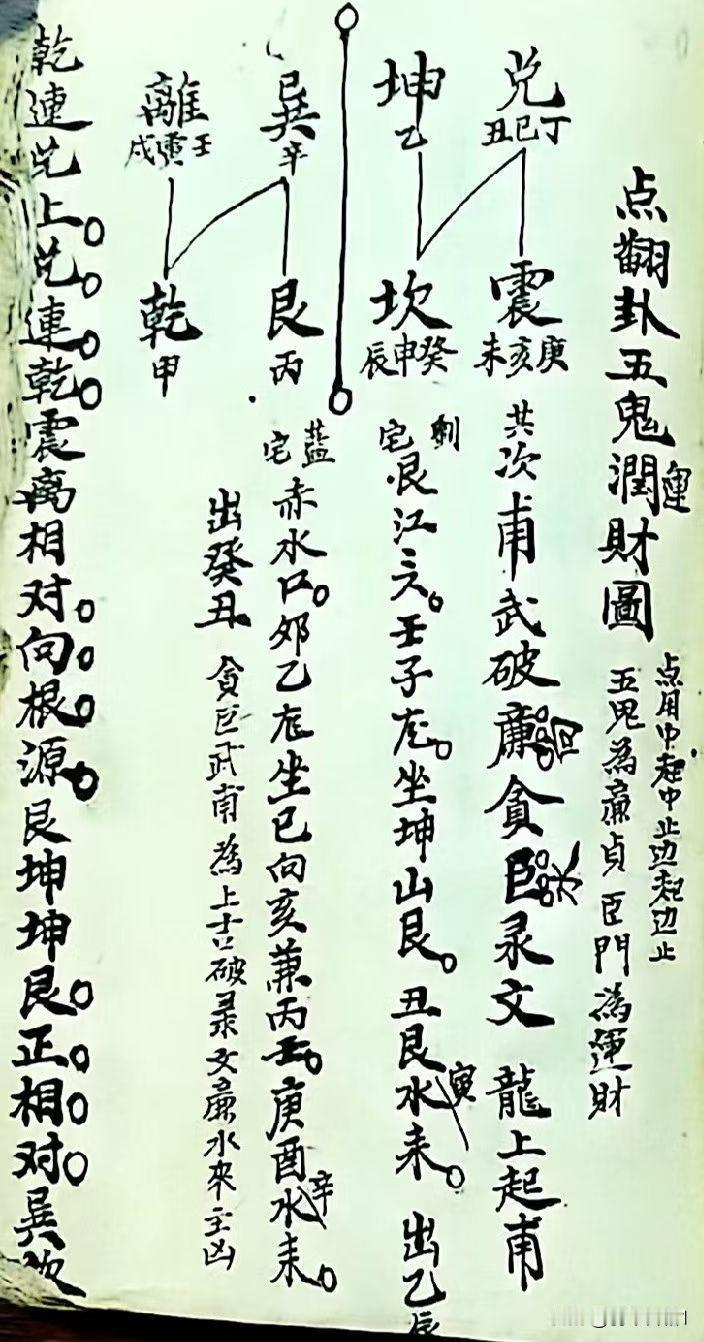 点翻卦五鬼潤財圖
運
点用中起中止边起边止
五鬼為廉貞巨門為運財
兑
丑巳丁
震
未亥庚
坤
乙
坎
辰申癸
巽
辛
離
戌寅壬
艮
丙
乾
甲
共次甫武破廉貪巨彔文 龍上起甫
回
水
剩宅
艮江三六。壬子㡳。坐坤山艮。丑艮水耒。出乙辰
寅
藍宅
赤水口。夘乙㡳坐巳向亥兼丙壬。庚酉水耒。
辛
出癸丑 貪巨武甫為上吉破彔文廉水來主凶
乾連兑上。兑。連。乾。震离相对。向。根。源。艮坤坤艮。正。相。对。巽坎